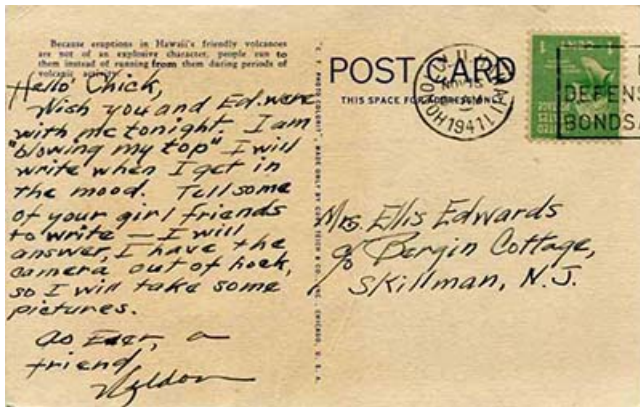 Because eruptions in Hawaii's friendly volcanoes
are not of an explosive character, people run to
them instead of running from them during periods of
volcanic activity.
Hello Chick,
Wish you and Ed. were
with me tonight. I am
"blowing my top" I will
write when I get in
the mood. Tell some
of your girl friends
to write — I will
answer, I have the
camera out of hock,
so I will take some
pictures.
As Ever, a
friend
Weldon
POST CARD
THIS SPACE FOR ADDRESS ONLY
HONOLULU
11
NOV 15
1941
1 CENT 1
DEFENS
BONDS
Mrs. Ellis Edwards
c/o Bergin Cottage,
Skillman, N.J.